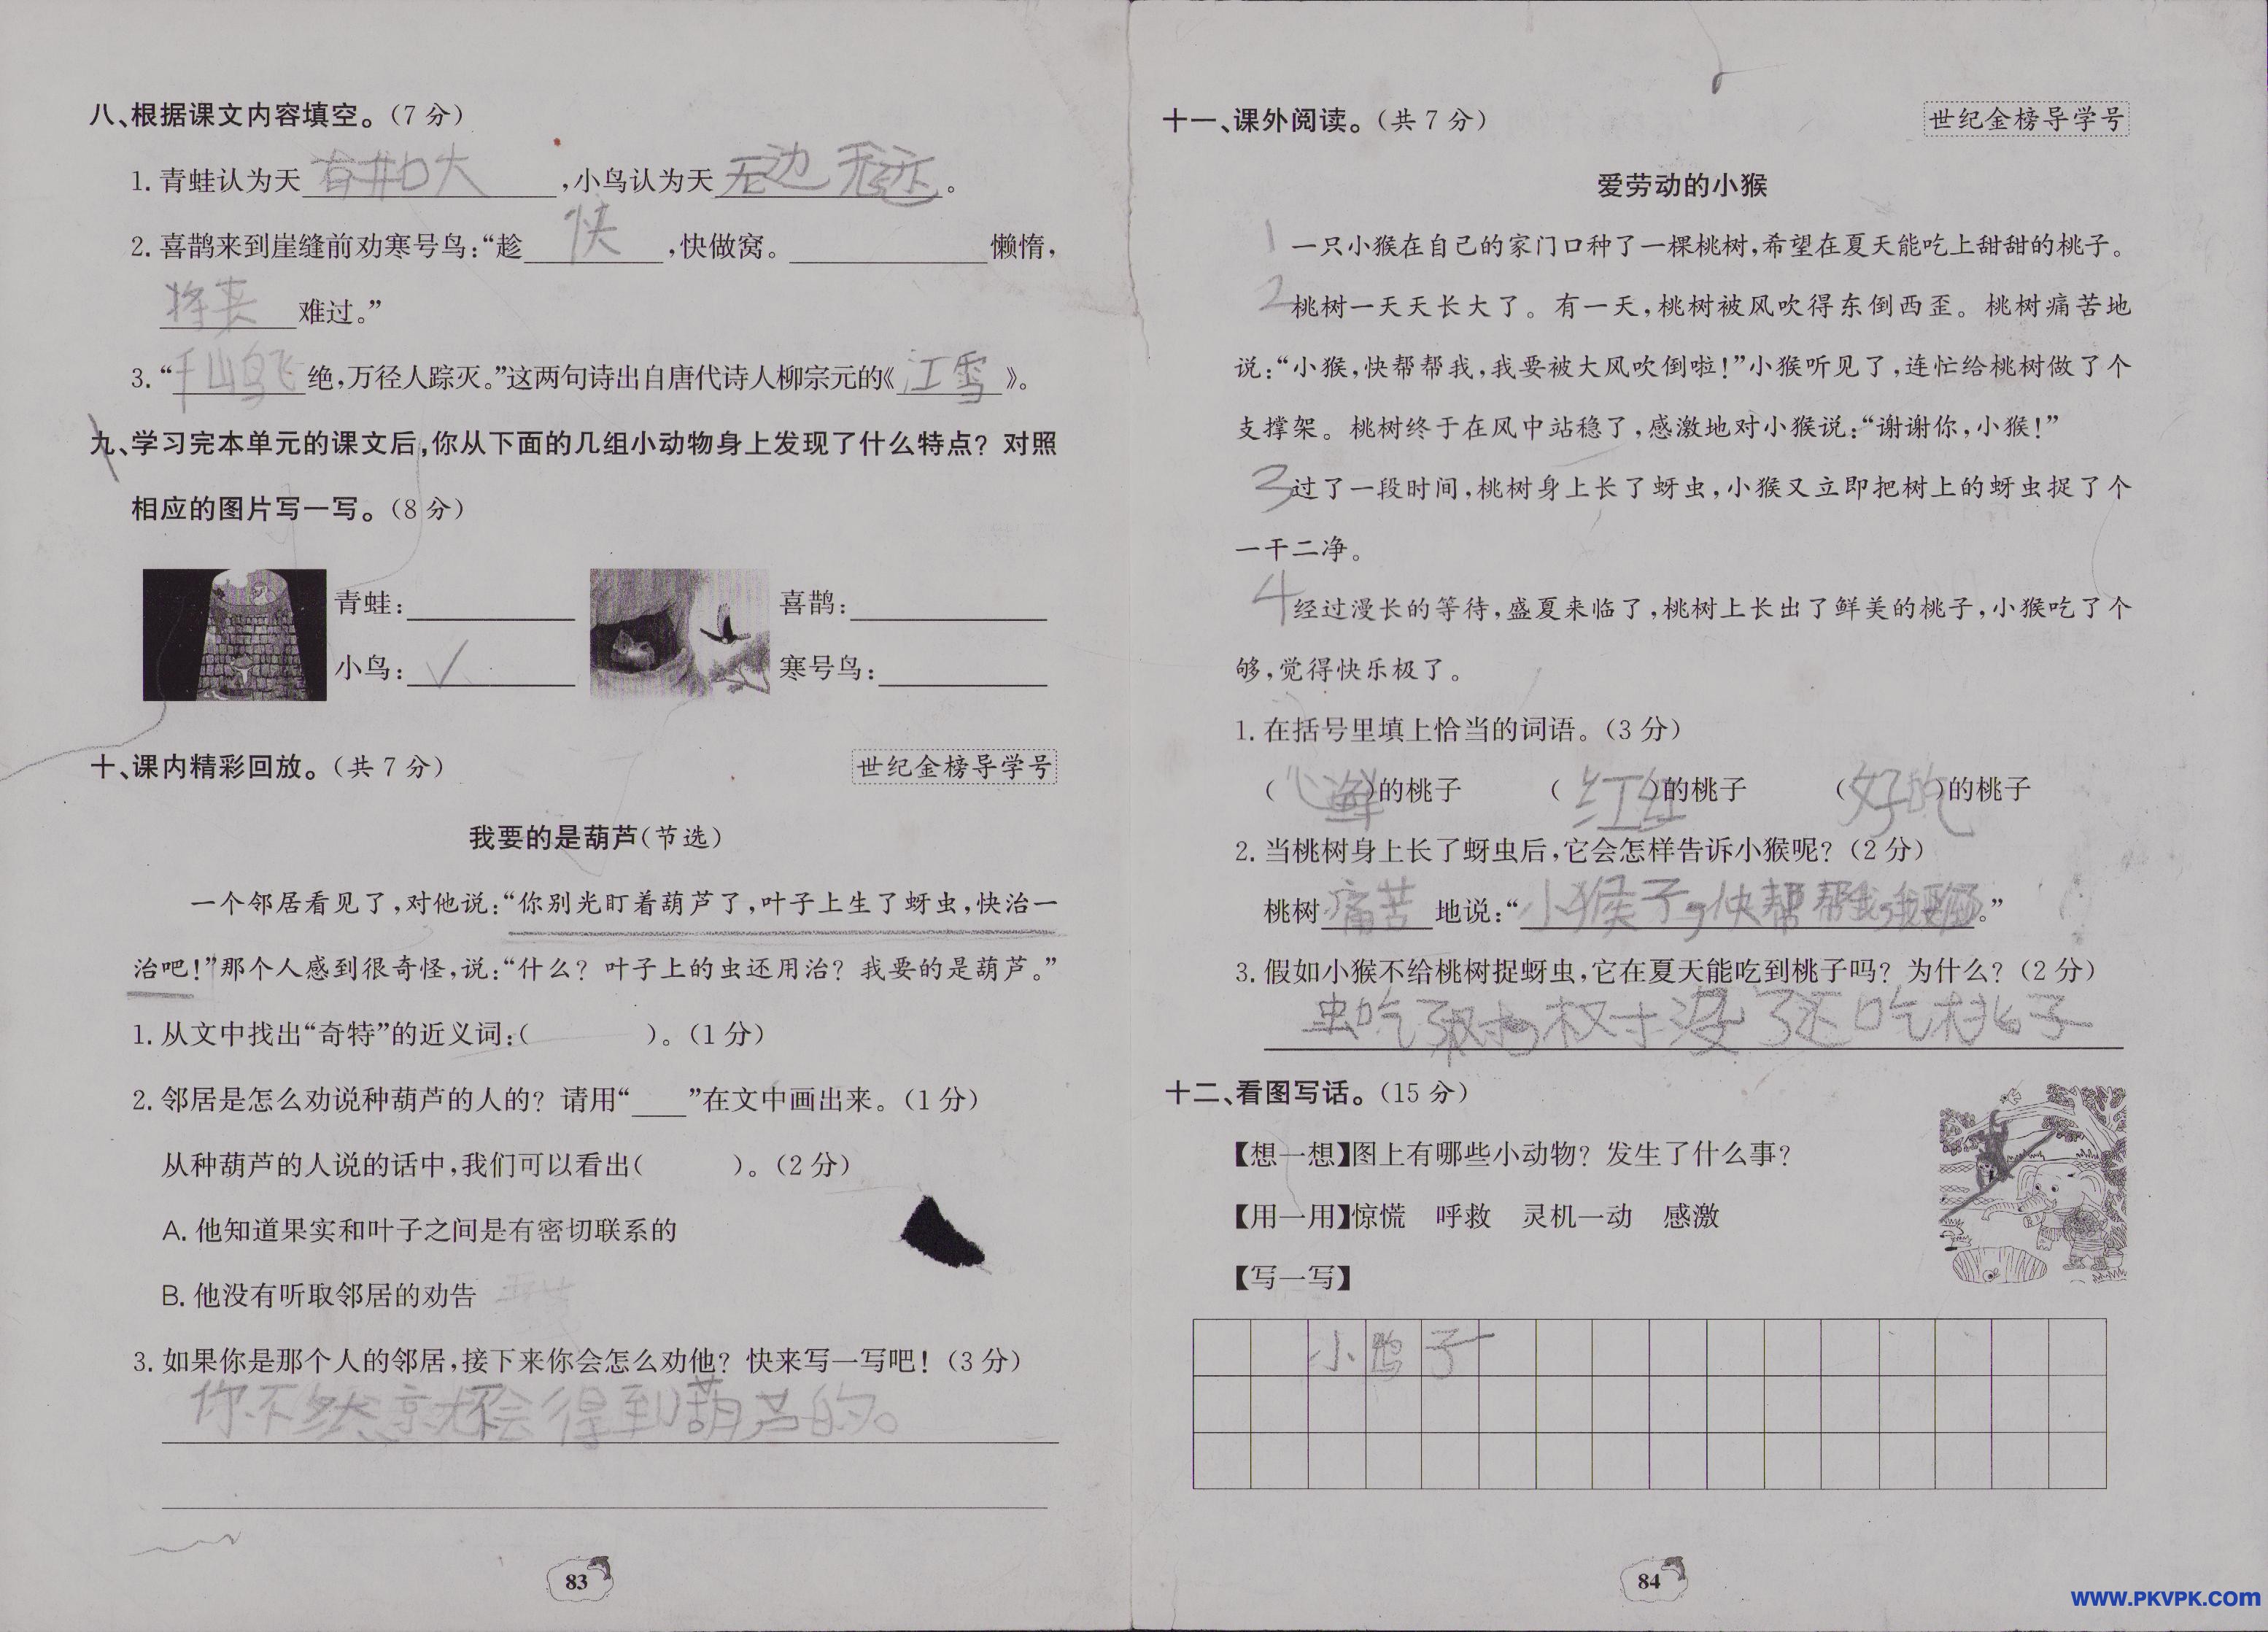 八、根据课文内容填空。(7 分)
1. 青蛙认为天有井口大,小鸟认为天无边无还。
2. 喜鹊来到崖缝前劝寒号鸟:“趁快,快做窝。懒惰,
难过。”
3. “千山鸟飞绝,万径人踪灭。”这两句诗出自唐代诗人柳宗元的《江雪》。
九、学习完本单元的课文后,你从下面的几组小动物身上发现了什么特点? 对照
相应的图片写一写。(8 分)
青蛙: 喜鹊:
小鸟:√ 寒号鸟:
十、课内精彩回放。(共 7 分) 世纪金榜导学号
我要的是葫芦(节选)
一个邻居看见了,对他说:“你别光盯着葫芦了,叶子上生了蚜虫,快治一
治吧!”那个人感到很奇怪,说:“什么? 叶子上的虫还用治? 我要的是葫芦。”
1. 从文中找出“奇特”的近义词:( )。(1 分)
2. 邻居是怎么劝说种葫芦的人的? 请用“____”在文中画出来。(1 分)
从种葫芦的人说的话中,我们可以看出( )。(2 分)
A. 他知道果实和叶子之间是有密切联系的
B. 他没有听取邻居的劝告
3. 如果你是那个人的邻居,接下来你会怎么劝他? 快来写一写吧! (3 分)
你不然就不会得到葫芦的。
83
十一、课外阅读。(共 7 分) 世纪金榜导学号
爱劳动的小猴
1 一只小猴在自己的家门口种了一棵桃树,希望在夏天能吃上甜甜的桃子。
2 桃树一天天长大了。有一天,桃树被风吹得东倒西歪。桃树痛苦地
说:“小猴,快帮帮我,我要被大风吹倒啦!”小猴听见了,连忙给桃树做了个
支撑架。桃树终于在风中站稳了,感激地对小猴说:“谢谢你,小猴!”
3 过了一段时间,桃树身上长了蚜虫,小猴又立即把树上的蚜虫捉了个
一干二净。
4 经过漫长的等待,盛夏来临了,桃树上长出了鲜美的桃子,小猴吃了个
够,觉得快乐极了。
1. 在括号里填上恰当的词语。(3 分)
(心鲜)的桃子 (红红)的桃子 (好吃)的桃子
2. 当桃树身上长了蚜虫后,它会怎样告诉小猴呢? (2 分)
桃树痛苦地说:“小猴子,快帮帮我,我要。”
3. 假如小猴不给桃树捉蚜虫,它在夏天能吃到桃子吗? 为什么? (2 分)
虫吃了树,树没了还吃桃子
十二、看图写话。(15 分)
【想一想】图上有哪些小动物? 发生了什么事?
【用一用】惊慌 呼救 灵机一动 感激
【写一写】
小鸭子
84
www.PKVPK.com